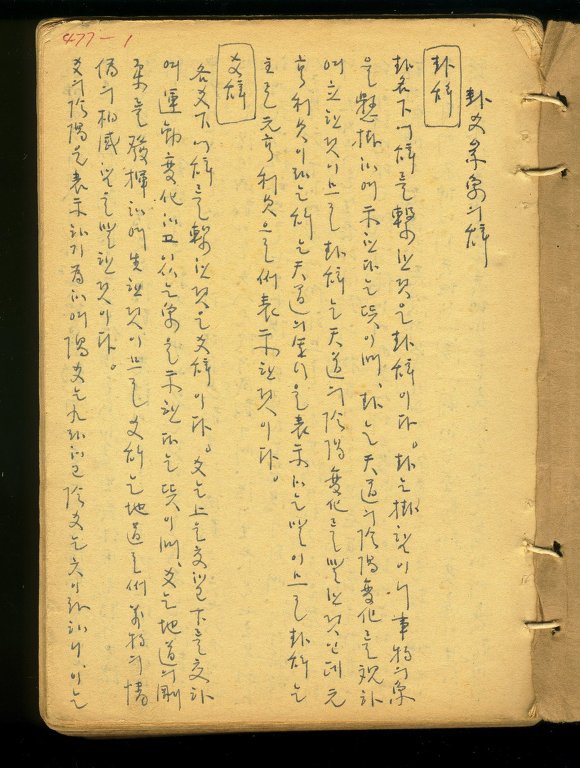 477-1
卦爻彖象의 辭
卦辭
卦名下에 辭를 繫한 것은 卦辭이다。卦는 掛함이니 事物의 象
을 懸掛하여 示한다는 뜻이며、卦는 天道의 陰陽變化를 視하
여 立한 것이므로 卦辭는 天道의 陰陽變化를 말한 것인데 元
亨利貞이라는 辭는 天道의 을 表示하는 말이므로 卦辭는
主로 元亨利貞으로써 表示한 것이다。
爻辭
各爻下에 辭를 繫한 것은 爻辭이다。爻는 上을 交하고 下를 交하
여 運動變化하고 있는 象을 示한다는 뜻이며、爻는 地道의 剛
柔를 發揮하여 生한 것이므로 爻辭는 地道로써 萬物의 情
僞의 相感함을 말한 것이다。
爻의 陰陽을 表示하기 爲하여 陽爻는 九라 하고 陰爻는 六이라 하니、이는